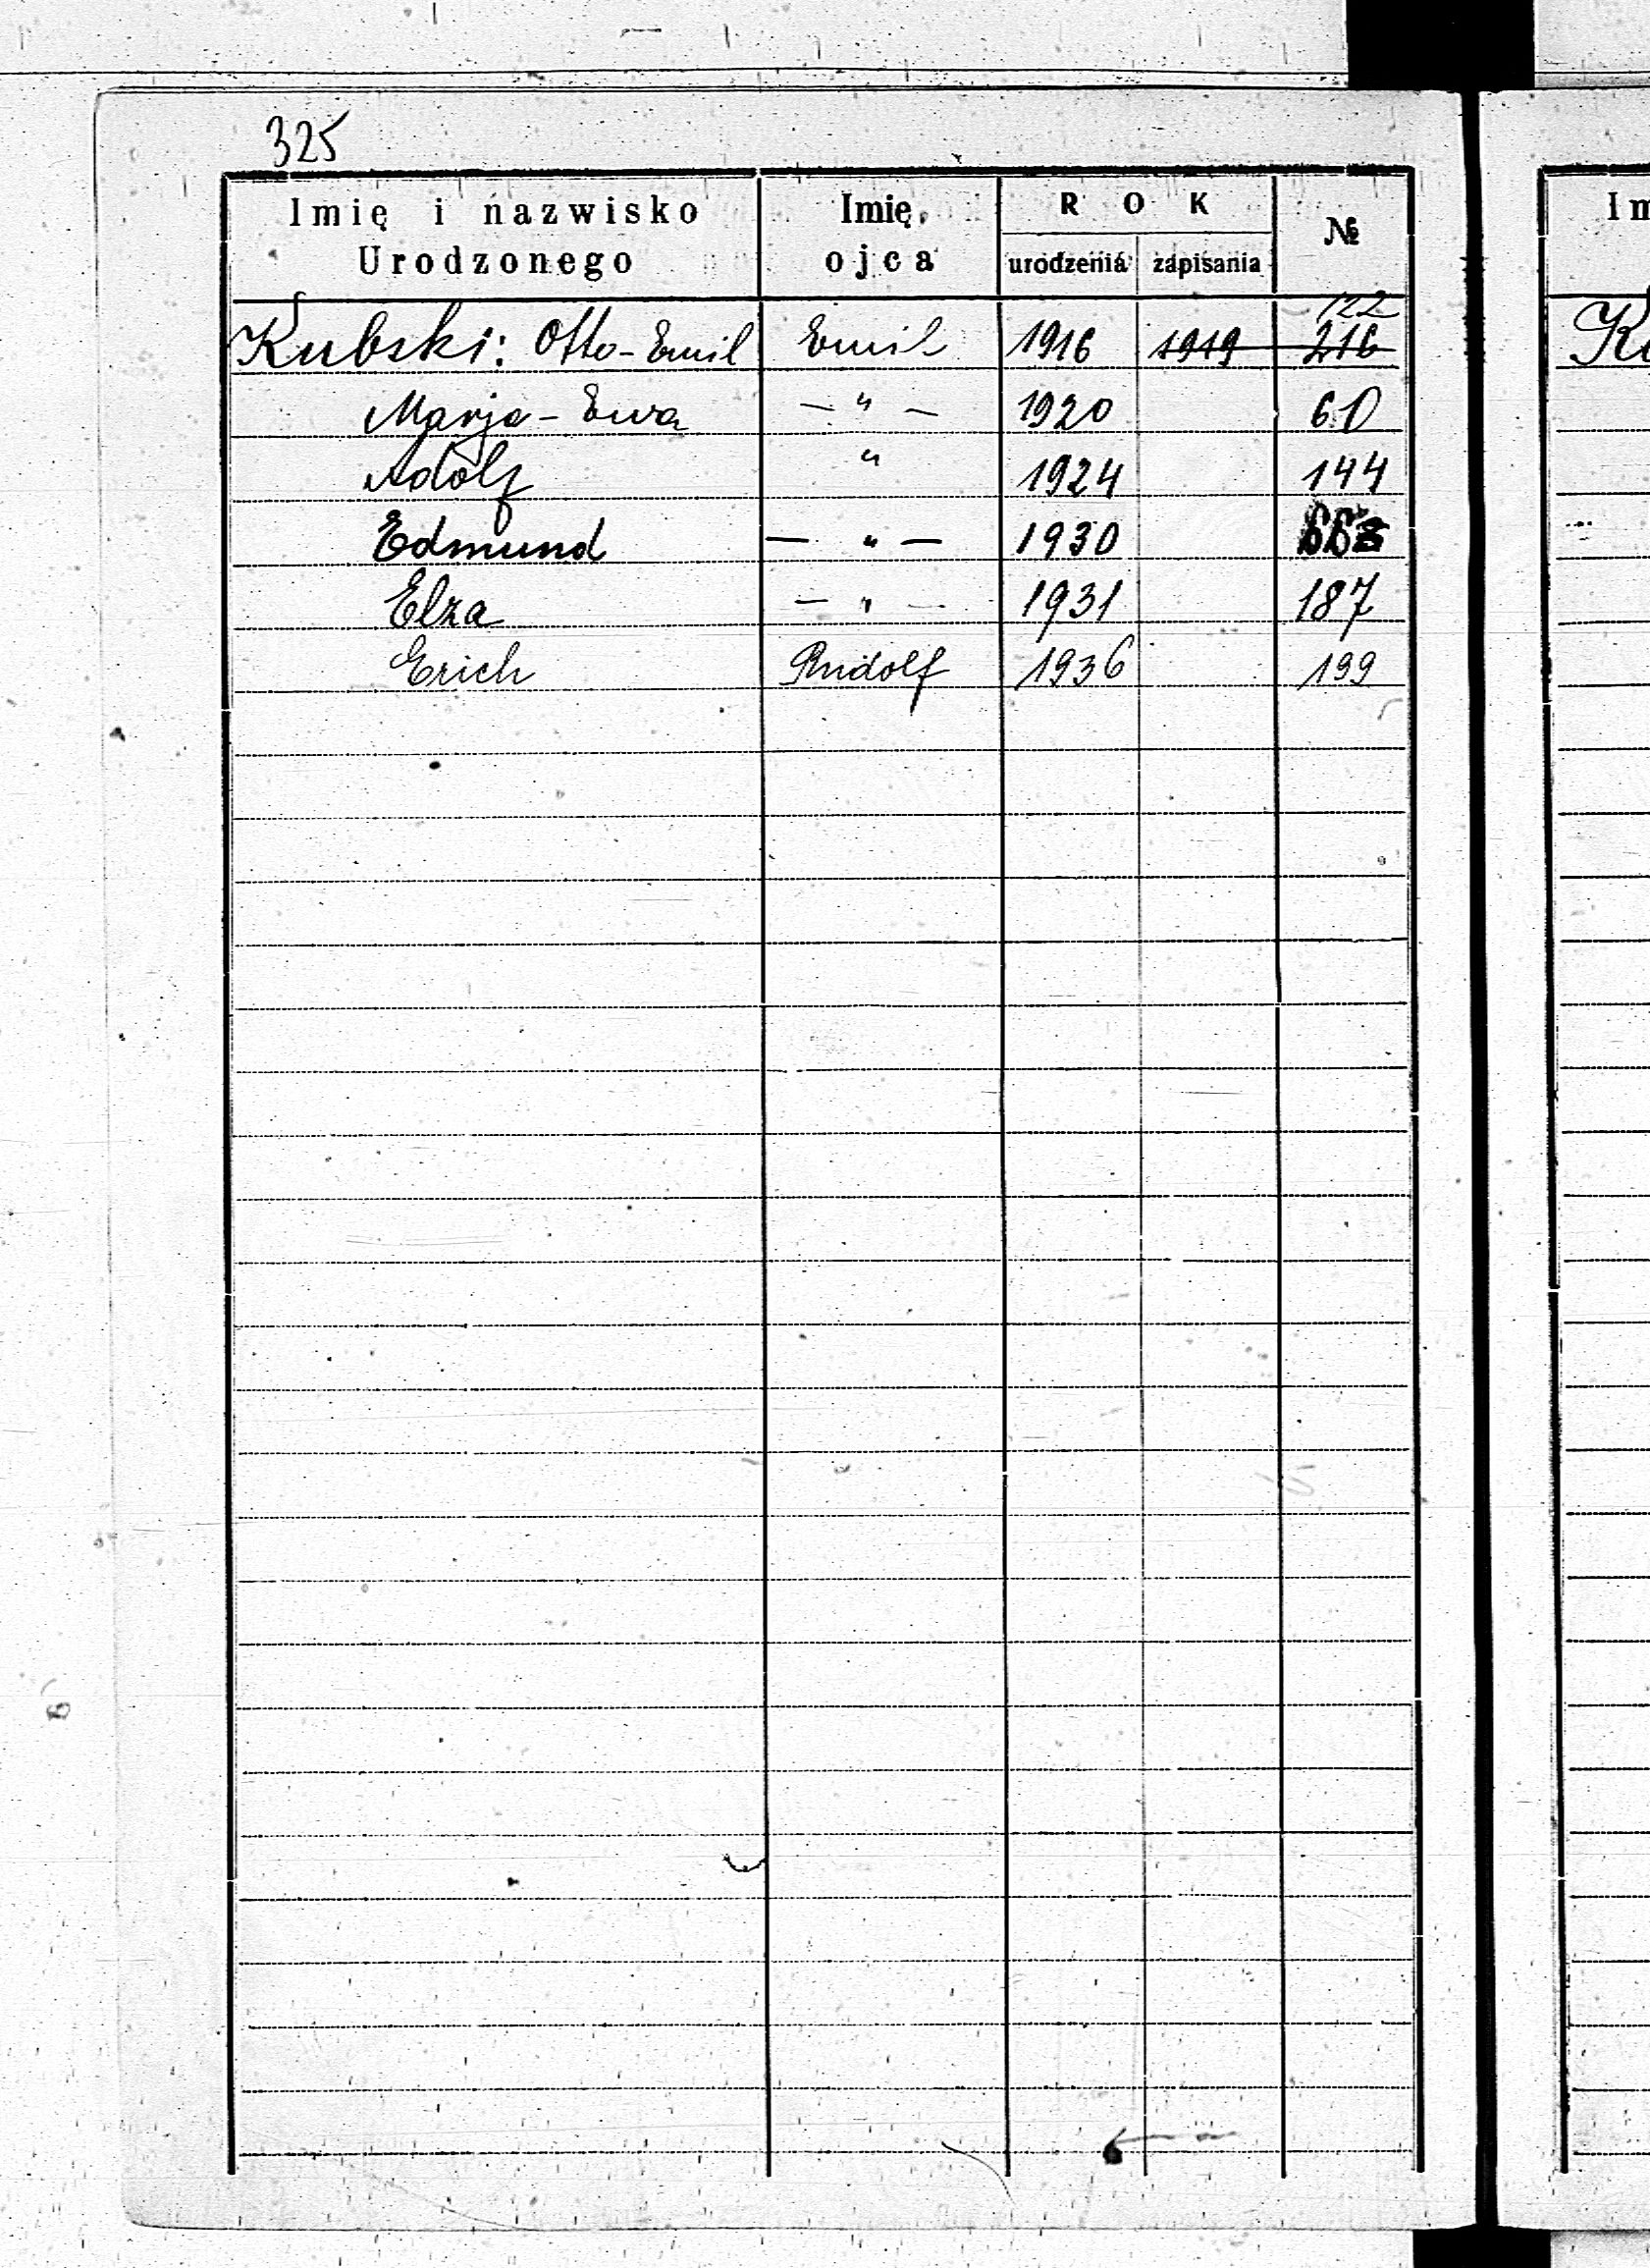 325
Imię i nazwisko Urodzonego Imię ojca ROK urodzenia zapisania №
122
Kubski: Otto-Emil Emil 1916 1919 216
Marja-Ewa — " — 1920 60
Adolf " 1924 144
Edmund — " — 1930
Elza — " — 1931 187
Erich Rudolf 1936 199
Im
K